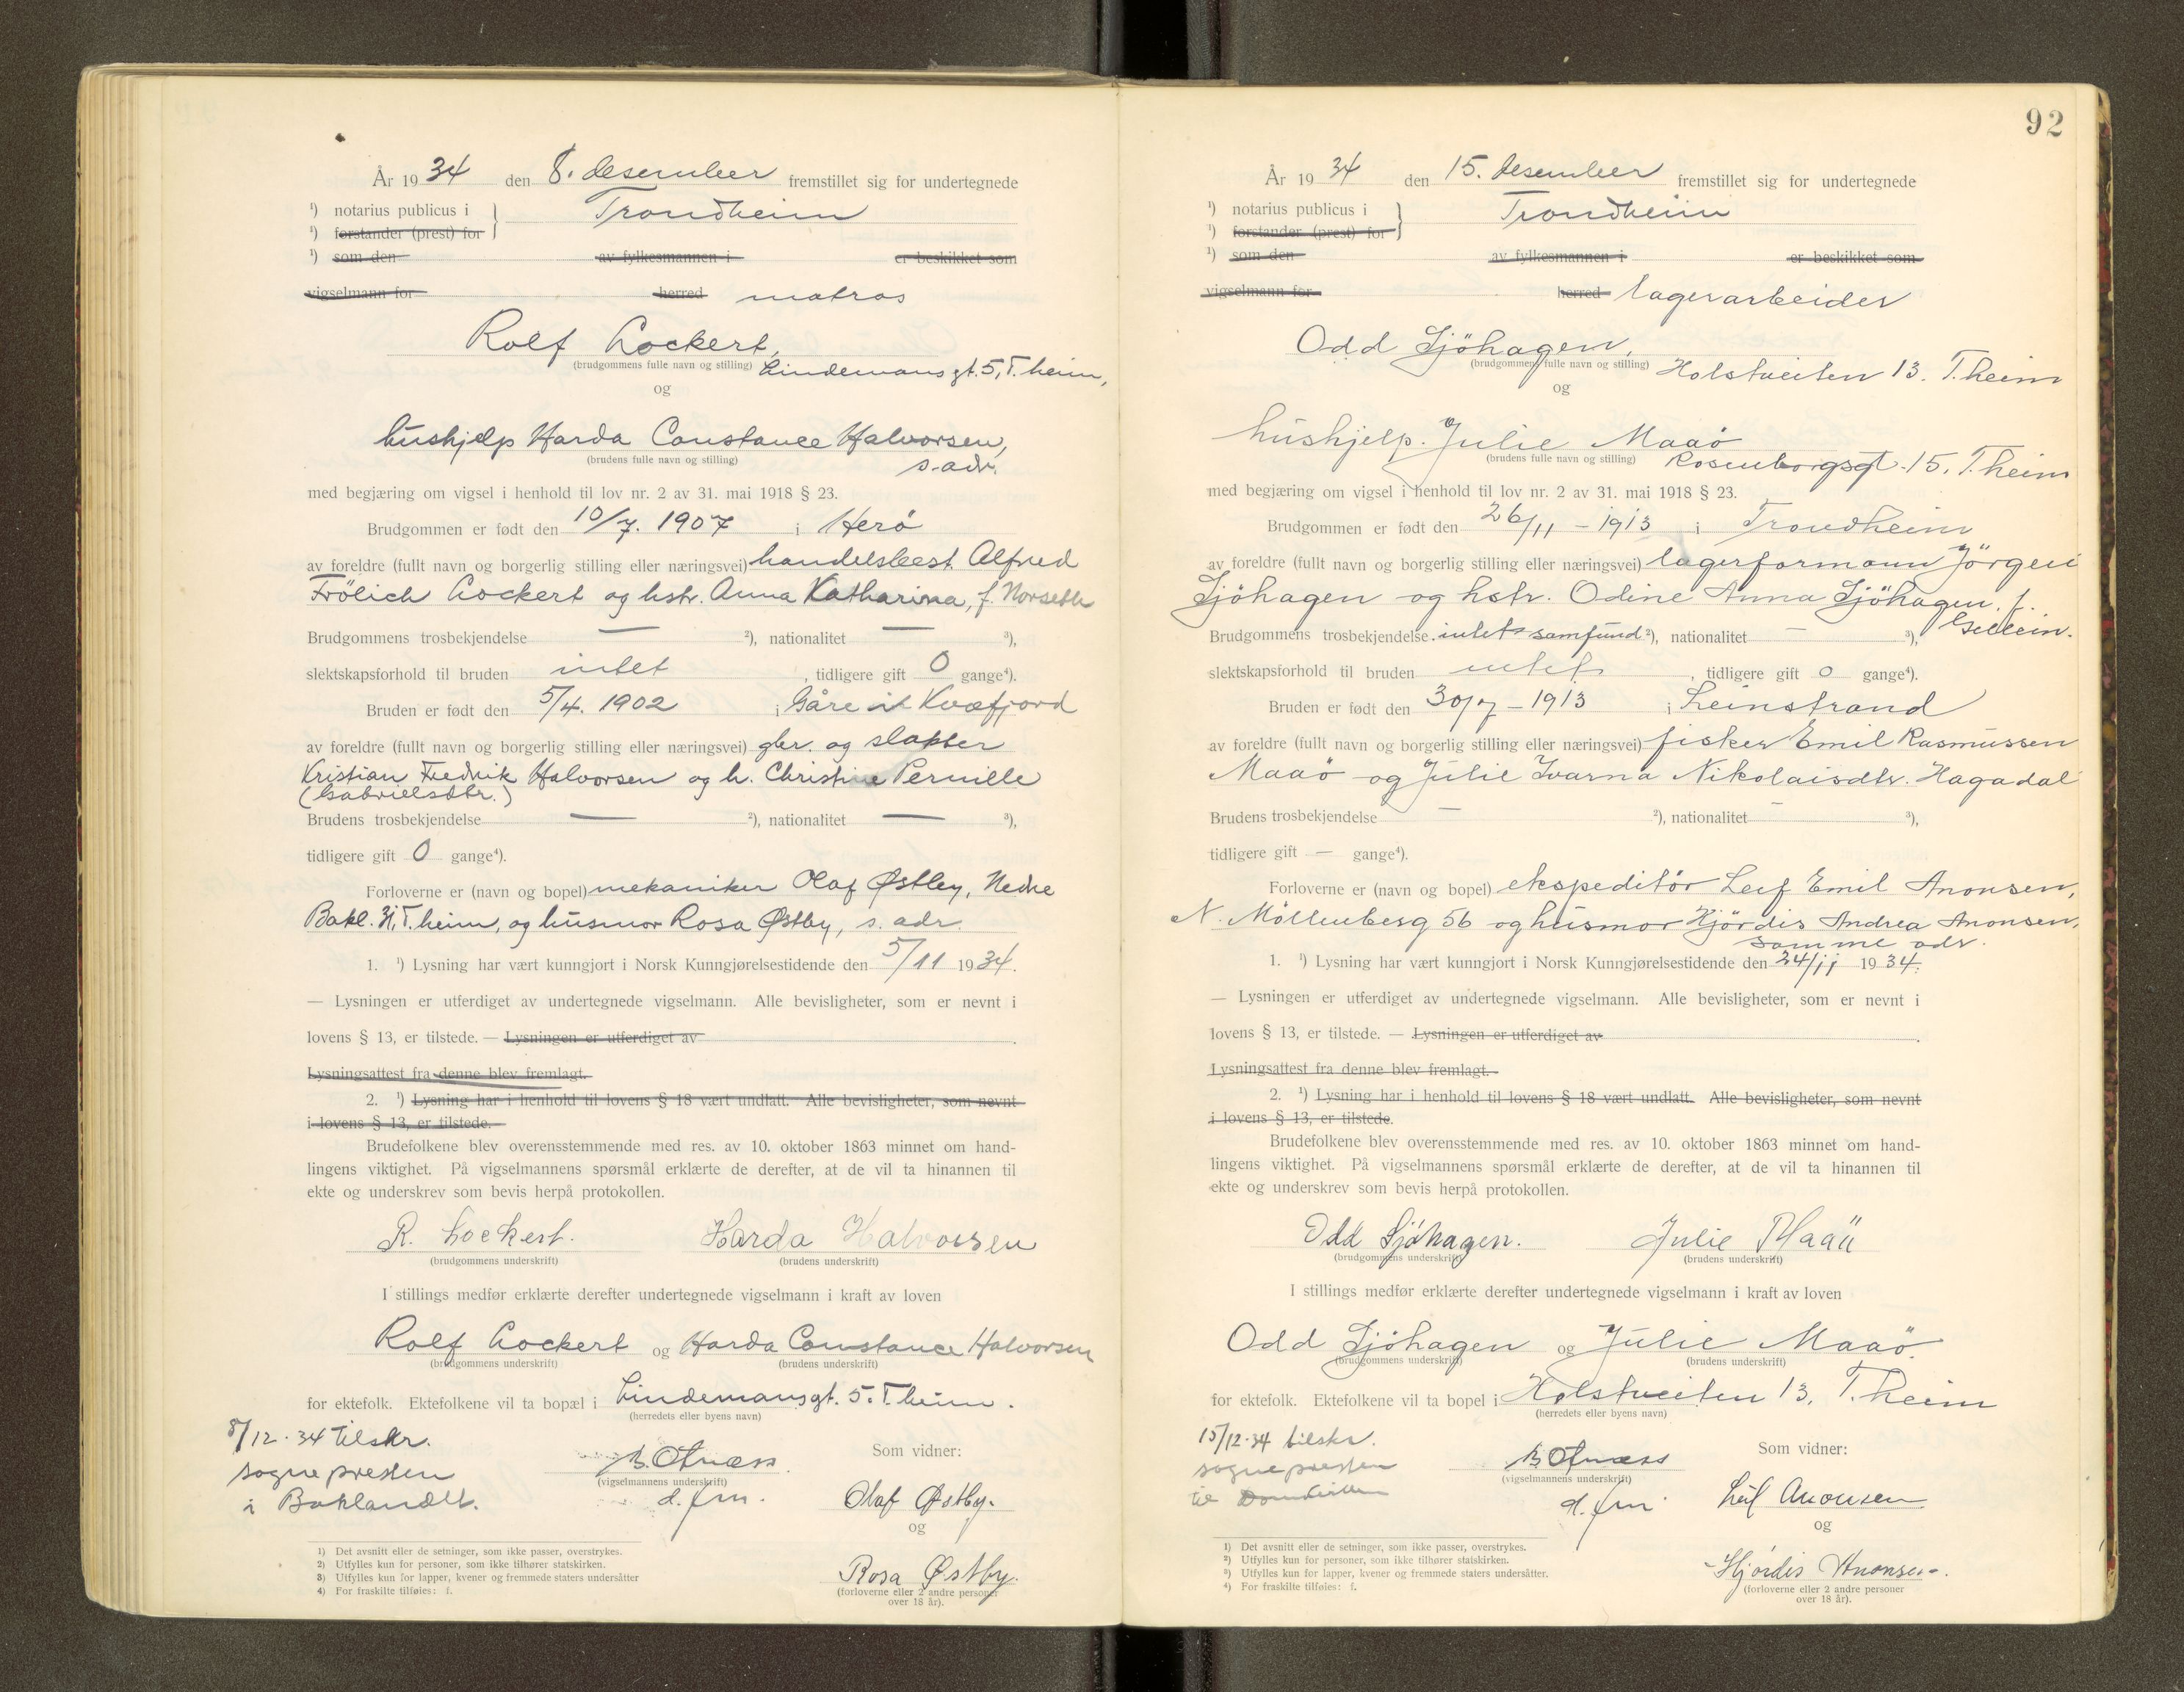 År 1934 den 8. desember fremstillet sig for undertegnede
¹) notarius publicus i } Trondheim
¹) forstander (prest) for
¹) som den av fylkesmannen i er beskikket som
vigselmann for herred matros
Rolf Lockert,
(brudgommens fulle navn og stilling) Lindemansgt. 5, T.heim,
og
hushjelp Harda Constance Halvorsen,
(brudens fulle navn og stilling) s. adr.
med begjæring om vigsel i henhold til lov nr. 2 av 31. mai 1918 § 23.
Brudgommen er født den 10/7. 1907 i Herö
av foreldre (fullt navn og borgerlig stilling eller næringsvei) handelsbest. Alfred
Frölich Lockert og hstr. Anna Katharina, f. Norseth
Brudgommens trosbekjendelse — ²), nationalitet — ³),
slektskapsforhold til bruden intet, tidligere gift 0 gange⁴).
Bruden er født den 5/4. 1902 i Gåre i Kvæfjord
av foreldre (fullt navn og borgerlig stilling eller næringsvei) gbr. og slakter
Kristian Fredrik Halvorsen og h. Christine Pernille
(Gabrielsdtr.)
Brudens trosbekjendelse — ²), nationalitet — ³),
tidligere gift 0 gange⁴).
Forloverne er (navn og bopel) mekaniker Olaf Østby, Nedre
Bakl. 31, T.heim, og husmor Rosa Østby, s. adr.
1. ¹) Lysning har vært kunngjort i Norsk Kunngjørelsestidende den 5/11 1934.
— Lysningen er utferdiget av undertegnede vigselmann. Alle bevisligheter, som er nevnt i
lovens § 13, er tilstede. — Lysningen er utferdiget av .
Lysningsattest fra denne blev fremlagt.
2. ¹) Lysning har i henhold til lovens § 18 vært undlatt. Alle bevisligheter, som nevnt
i lovens § 13, er tilstede.
Brudefolkene blev overensstemmende med res. av 10. oktober 1863 minnet om hand-
lingens viktighet. På vigselmannens spørsmål erklærte de derefter, at de vil ta hinannen til
ekte og underskrev som bevis herpå protokollen.
R. Lockert. Harda Halvorsen
(brudgommens underskrift) (brudens underskrift)
I stillings medfør erklærte derefter undertegnede vigselmann i kraft av loven
Rolf Lockert og Harda Constance Halvorsen
(brudgommens underskrift) (brudens underskrift)
for ektefolk. Ektefolkene vil ta bopæl i Lindemansgt. 5. T.heim.
(herredets eller byens navn)
8/12-34 tilskr.
sognepresten
i Baklandet.
B. Otnæss
(vigselmannens underskrift)
d. fm.
Som vidner:
Olaf Østby.
og
Rosa Østby.
(forloverne eller 2 andre personer
over 18 år).
1) Det avsnitt eller de setninger, som ikke passer, overstrykes.
2) Utfylles kun for personer, som ikke tilhører statskirken.
3) Utfylles kun for lapper, kvener og fremmede staters undersåtter
4) For fraskilte tilføies: f.
92
År 1934 den 15. desember fremstillet sig for undertegnede
¹) notarius publicus i } Trondheim
¹) forstander (prest) for
¹) som den av fylkesmannen i er beskikket som
vigselmann for herred lagerarbeider
Odd Sjöhagen,
(brudgommens fulle navn og stilling) Holstveiten 13. T.heim
og
hushjelp. Julie Maaö
(brudens fulle navn og stilling) Rosenborgsgt. 15. T.heim
med begjæring om vigsel i henhold til lov nr. 2 av 31. mai 1918 § 23.
Brudgommen er født den 26/11 – 1913 i Trondheim
av foreldre (fullt navn og borgerlig stilling eller næringsvei) lagerformann Jörgen
Sjöhagen og hstr. Odine Anna Sjöhagen, f.
Brudgommens trosbekjendelse intet samfund ²), nationalitet — ³),
slektskapsforhold til bruden intet, tidligere gift 0 gange⁴).
Bruden er født den 30/7 – 1913 i Leinstrand
av foreldre (fullt navn og borgerlig stilling eller næringsvei) fisker Emil Rasmussen
Maaö og Julie Ivarna Nikolaisdtr. Hagadal
Brudens trosbekjendelse — ²), nationalitet — ³),
tidligere gift — gange⁴).
Forloverne er (navn og bopel) ekspeditör Leif Emil Anonsen,
N. Möllenberg 56 og husmor Hjördis Andrea Anonsen,
samme adr.
1. ¹) Lysning har vært kunngjort i Norsk Kunngjørelsestidende den 24/11 1934.
— Lysningen er utferdiget av undertegnede vigselmann. Alle bevisligheter, som er nevnt i
lovens § 13, er tilstede. — Lysningen er utferdiget av .
Lysningsattest fra denne blev fremlagt.
2. ¹) Lysning har i henhold til lovens § 18 vært undlatt. Alle bevisligheter, som nevnt
i lovens § 13, er tilstede.
Brudefolkene blev overensstemmende med res. av 10. oktober 1863 minnet om hand-
lingens viktighet. På vigselmannens spørsmål erklærte de derefter, at de vil ta hinannen til
ekte og underskrev som bevis herpå protokollen.
Odd Sjöhagen. Julie Maaö
(brudgommens underskrift) (brudens underskrift)
I stillings medfør erklærte derefter undertegnede vigselmann i kraft av loven
Odd Sjöhagen og Julie Maaö.
(brudgommens underskrift) (brudens underskrift)
for ektefolk. Ektefolkene vil ta bopel i Holstveiten 13, T.heim
(herredets eller byens navn)
15/12-34 tilskr.
sognepresten
til
B Otnæss
(vigselmannens underskrift)
d. fm.
Som vidner:
Leif Anonsen
og
Hjördis Anonsen.
(forloverne eller 2 andre personer
over 18 år).
1) Det avsnitt eller de setninger, som ikke passer, overstrykes.
2) Utfylles kun for personer, som ikke tilhører statskirken.
3) Utfylles kun for lapper, kvener og fremmede staters undersåtter.
4) For fraskilte tilføies: f.